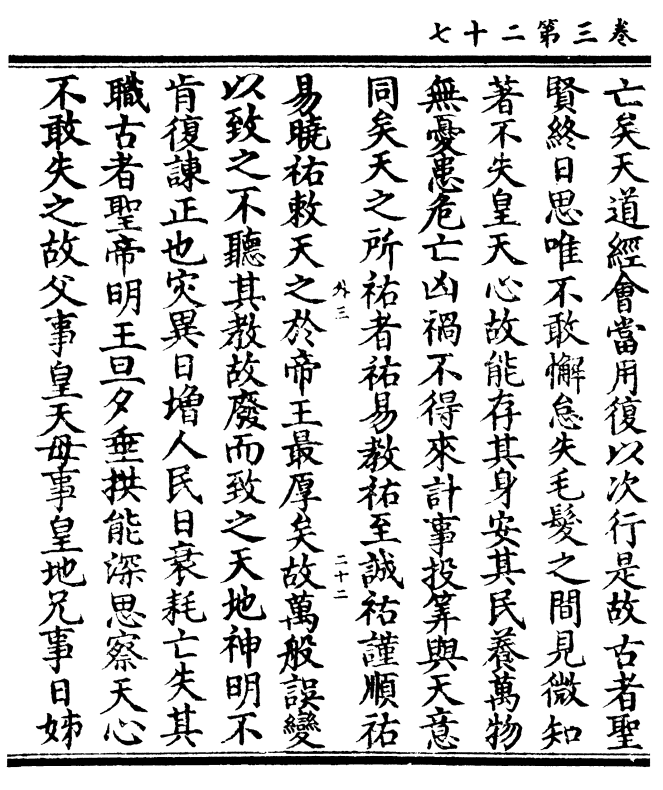 卷三第二十七
亡矣天道經會當用復以次行是故古者聖
賢終日思唯不敢懈怠失毛髮之間見微知
著不失皇天心故能存其身安其民養萬物
無憂患危亡凶禍不得來計事投筭與天意
同矣天之所祐者祐易教祐至誠祐謹順祐
外三
二十二
易曉祐敕天之於帝王最厚矣故萬般誤變
以致之不聽其教故廢而致之天地神明不
肯復諫正也灾異日增人民日衰耗亡失其
職古者聖帝明王旦夕垂拱能深思察天心
不敢失之故父事皇天母事皇地兄事日姊